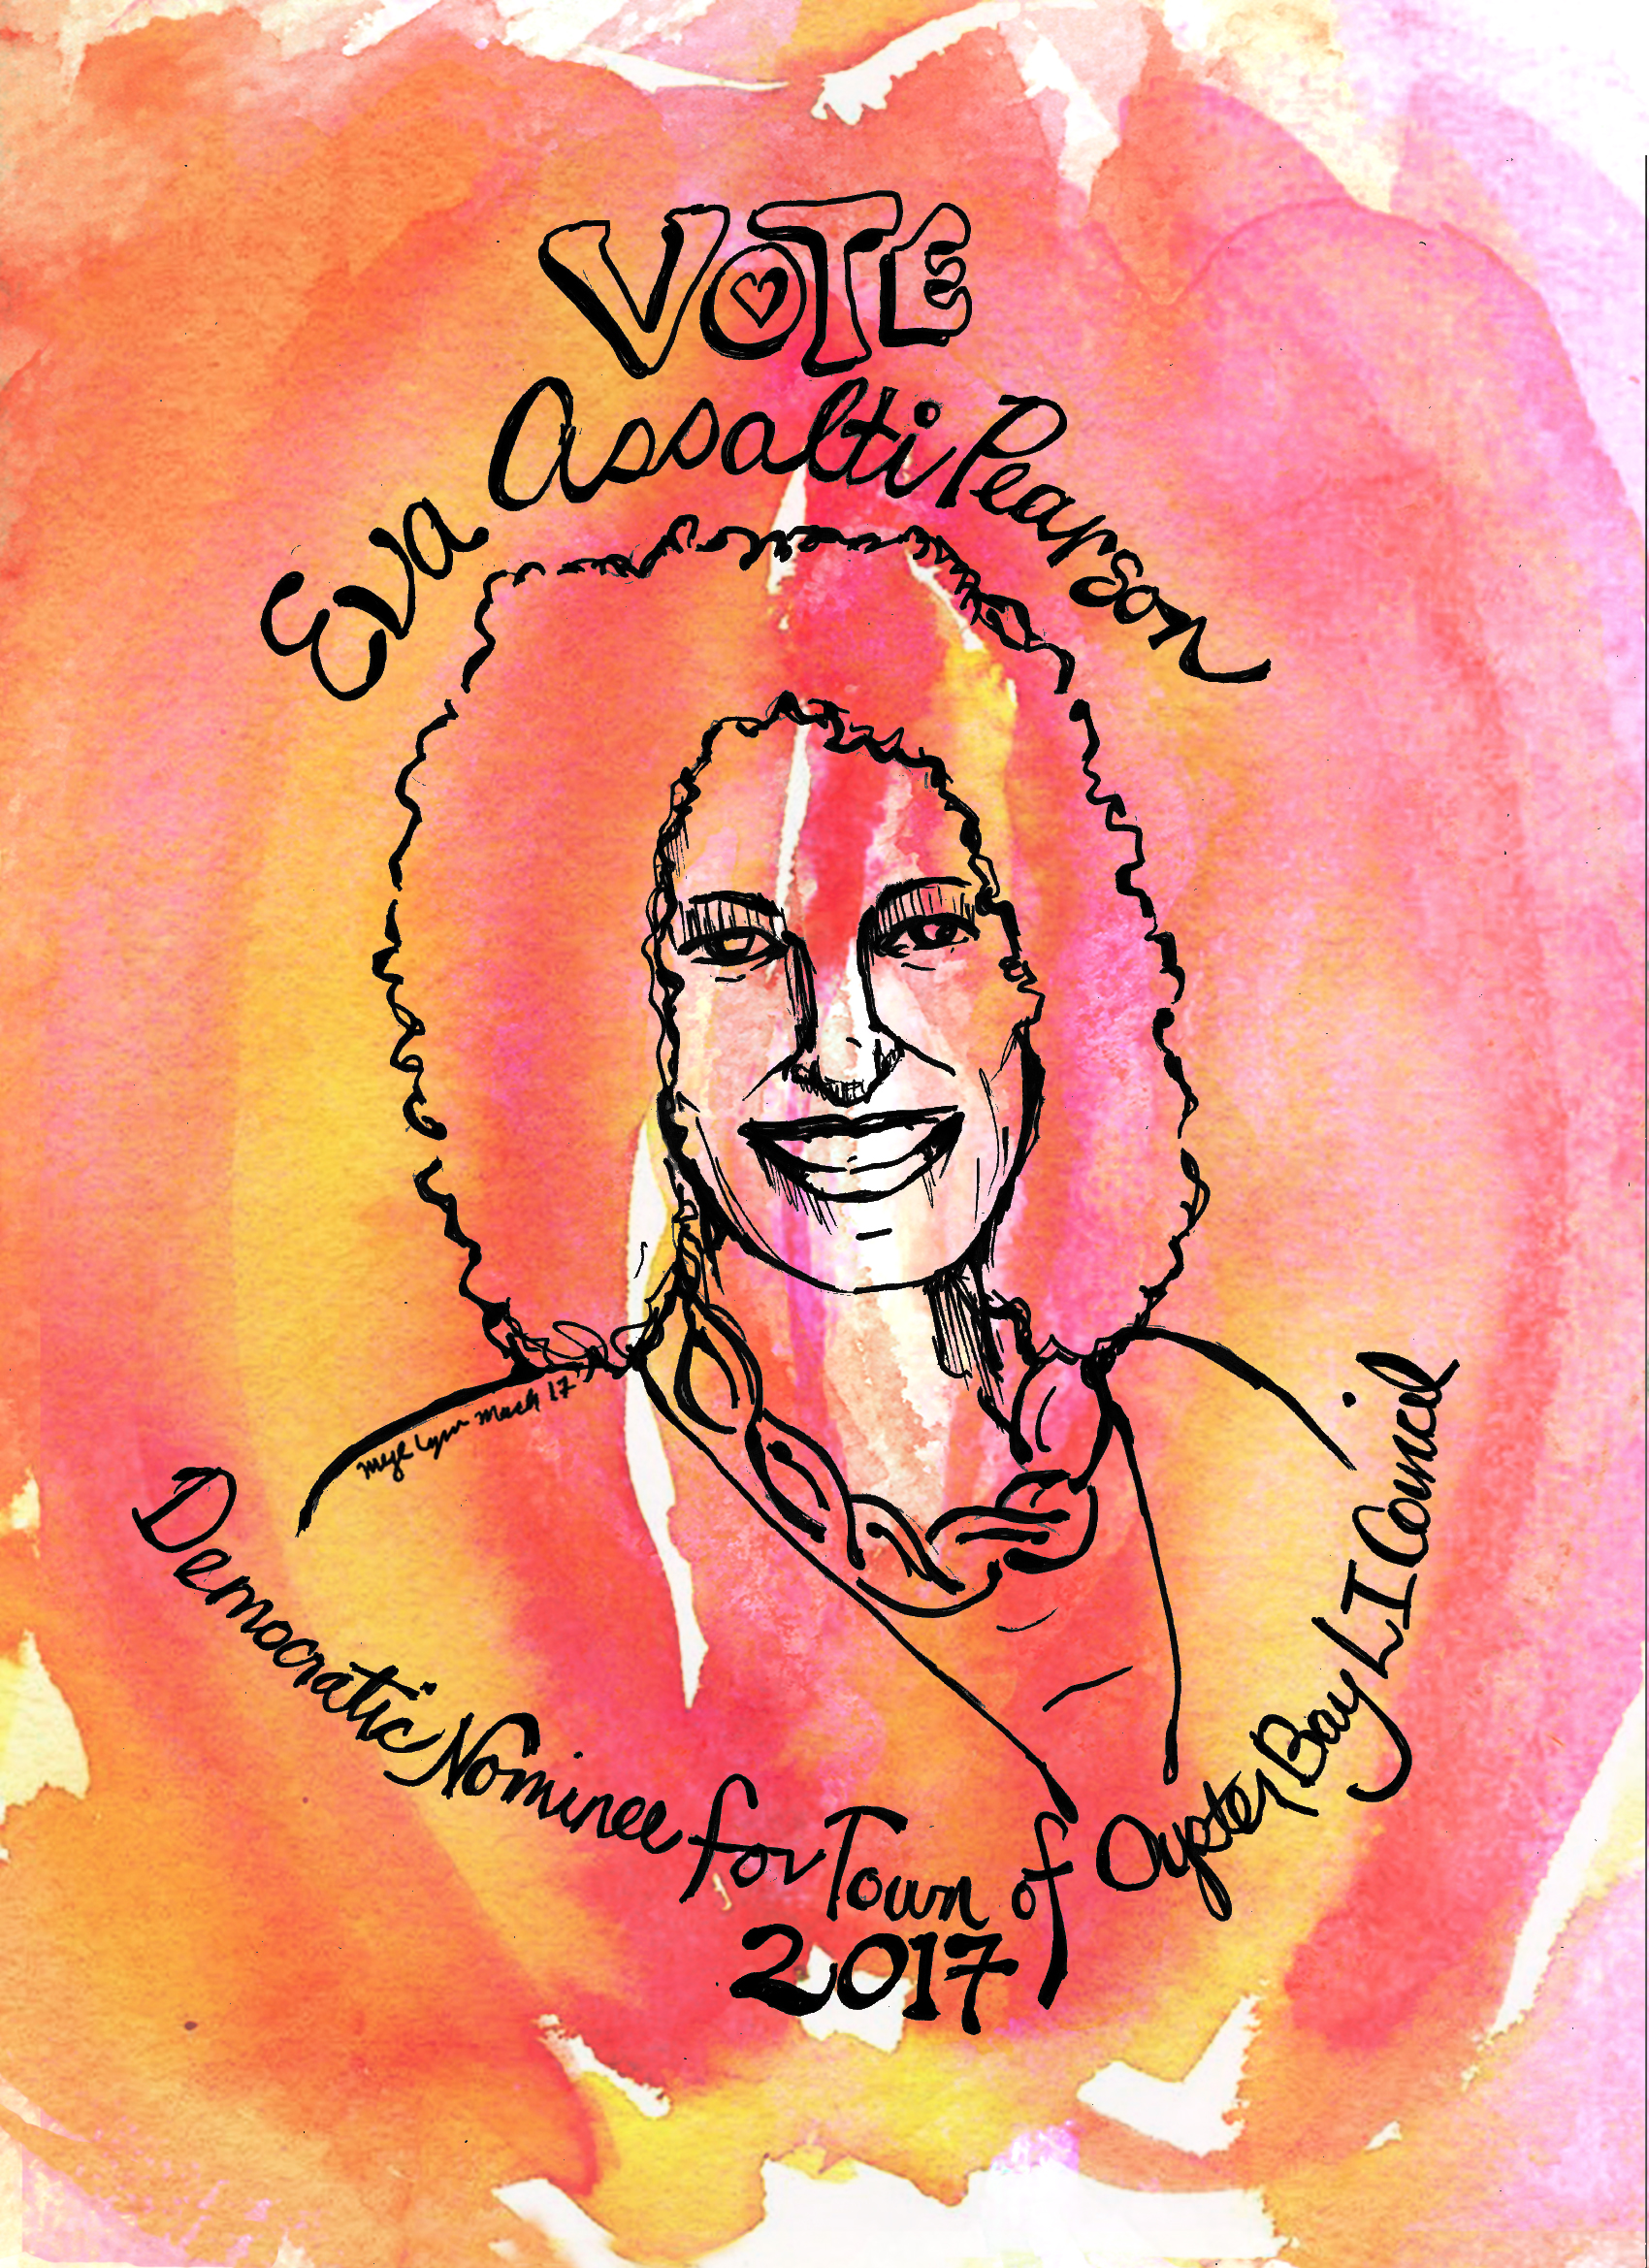 VOTE
Eva Assalti Pearson
Democratic Nominee for Town of Oyster Bay LI Council
2017